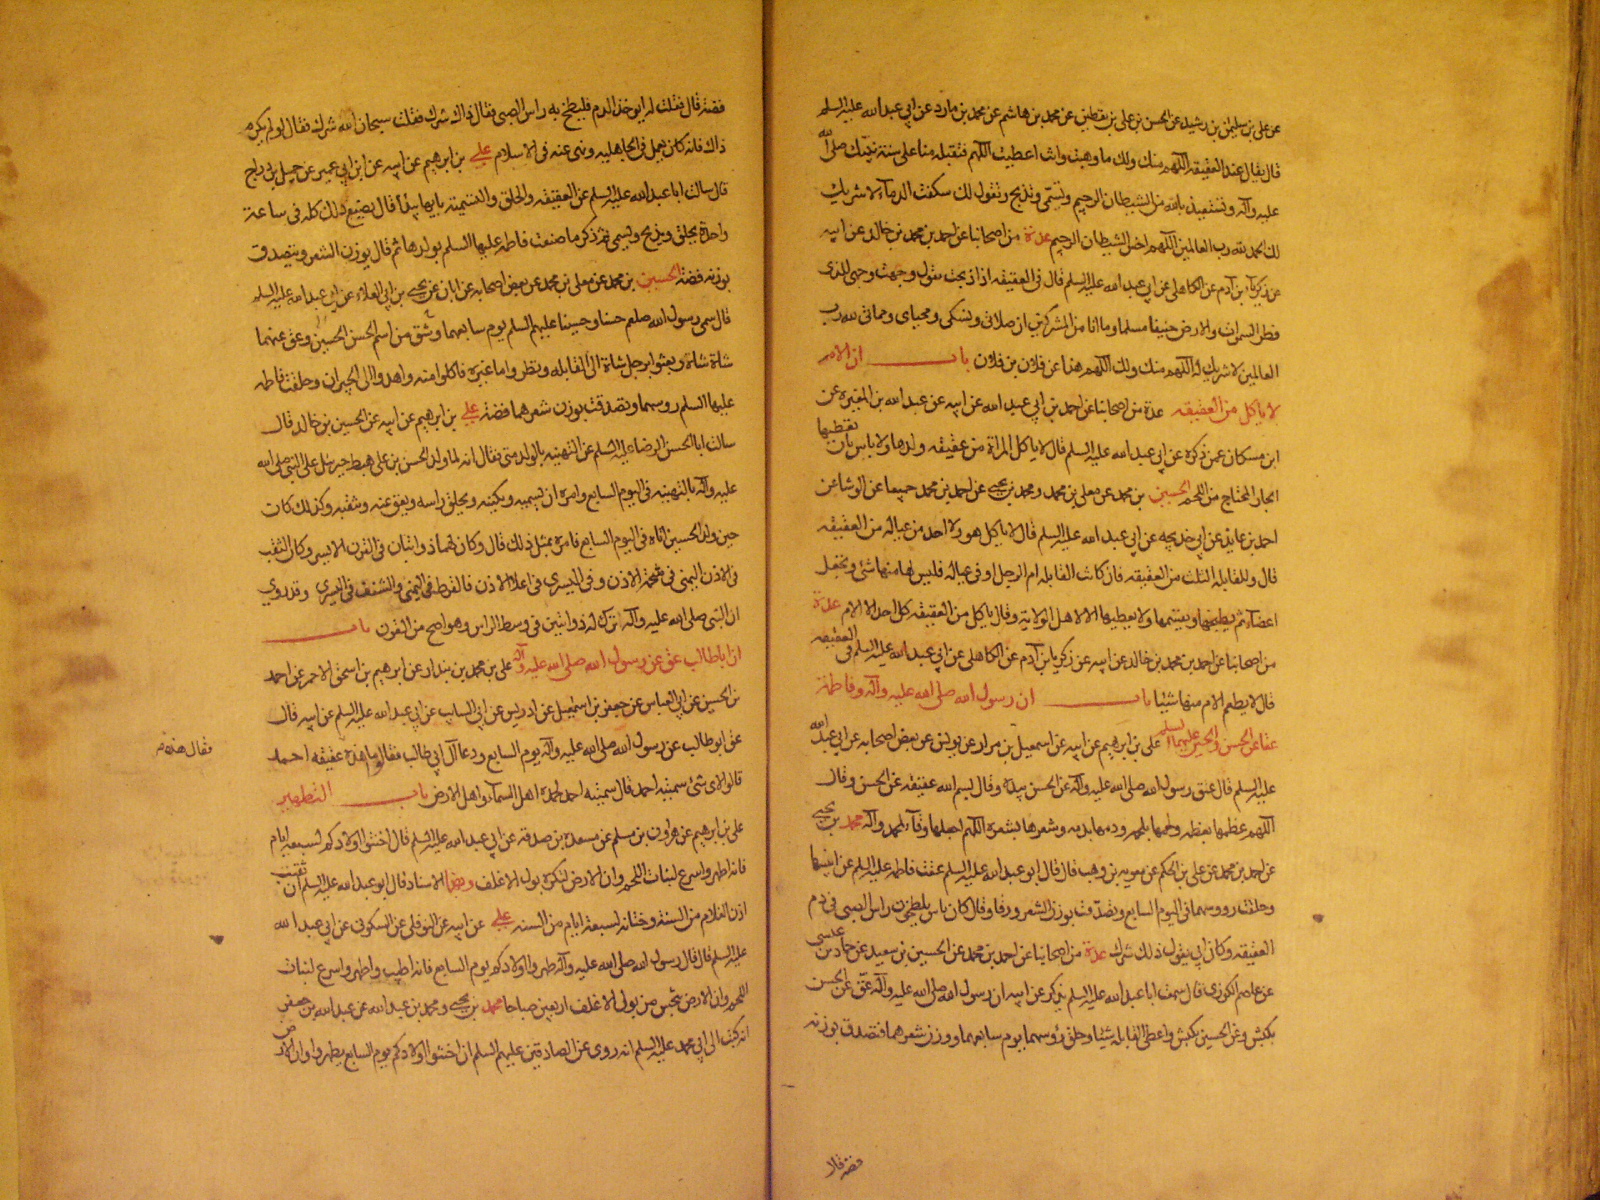 عن علي بن سليمان بن رشيد عن الحسن بن علي بن يقطين عن محمد بن هاشم عن محمد بن مارد عن ابي عبد الله عليه السلم
قال يقال عند العقيقة اللهم منك ولك ما وهبت وانت اعطيت اللهم فتقبله منا على سنة نبيك صلى الله
عليه وآله ونستعيذ بالله من الشيطان الرجيم وتسمي وتذبح وتقول لك سفكت الدماء لا شريك
لك الحمد لله رب العالمين اللهم اخسأ الشيطان الرجيم عدة من اصحابنا عن احمد بن محمد بن خالد عن ابيه
عن زكريا بن آدم عن الكاهلي عن ابي عبد الله عليه السلم قال في العقيقة اذا ذبحت تقول وجهت وجهي للذي
فطر السموات والارض حنيفا مسلما وما انا من المشركين ان صلاتي ونسكي ومحياي ومماتي لله رب
العالمين لا شريك له اللهم منك ولك اللهم هذا عن فلان بن فلان باب ان الام
لا ياكل من العقيقة عدة من اصحابنا عن احمد بن ابي عبد الله عن ابيه عن عبد الله بن المغيرة عن
ابن مسكان عمن ذكره عن ابي عبد الله عليه السلم قال لا ياكل المراة من عقيقة ولدها ولا باس بان يعطيها
الجار المحتاج من اللحم الحسين بن محمد عن معلى بن محمد ومحمد بن يحيى عن احمد بن محمد جميعا عن الوشا عن
احمد بن عايذ عن ابي خديجه عن ابي عبد الله عليه السلم قال لا ياكل هو ولا احد من عياله من العقيقة
قال وللقابلة الثلث من العقيقة فان كانت القابلة ام الرجل او في عياله فليس لها منها شئ وتجعل
اعضاء ثم يطبخها ويقسمها ولا يعطيها الا لاهل الولاية وقال ياكل من العقيقة كل احد الا الام عدة
من اصحابنا عن احمد بن محمد بن خالد عن ابيه عن زكريا بن آدم عن الكاهلي عن ابي عبد الله عليه السلم في العقيقة
قال لا يطعم الام منها شيئا باب ان رسول الله صلى الله عليه وآله وفاطمة
عقا عن الحسن والحسين عليهما السلم علي بن ابرهيم عن ابيه عن اسمعيل بن مرار عن يونس عن بعض اصحابه عن ابي عبد الله
عليه السلم قال عق رسول الله صلى الله عليه وآله عن الحسن بيده وقال بسم الله عقيقة عن الحسن وقال
اللهم عظمها بعظمه ولحمها بلحمه ودمها بدمه وشعرها بشعره اللهم اجعلها وقاء لمحمد وآله محمد بن يحيى
عن احمد بن محمد عن علي بن الحكم عن معوية بن وهب قال قال ابو عبد الله عليه السلم عقت فاطمة عليها السلم عن ابنيها
وحلقت روسهما في اليوم السابع وتصدقت بوزن الشعر ورقا وقال كان ناس يلطخون راس الصبي في دم
العقيقة وكان ابي يقول ذلك شرك عدة من اصحابنا عن احمد بن محمد عن الحسين بن سعيد عن حماد بن عيسى
عن عاصم الكوزي قال سمعت ابا عبد الله عليه السلم يذكر عن ابيه ان رسول الله صلى الله عليه وآله عق عن الحسن
بكبش وعن الحسين بكبش واعطى القابلة شيئا وحلق رؤسهما يوم سابعهما ووزن شعرهما فتصدق بوزنه
فضة قال
فضة قال فقلت له ايوخذ الدم فليطخ به راس الصبي فقال ذاك شرك فقلت سبحان الله شرك فقال لو لم يكن
ذاك فانه كان يعمل في الجاهلية ونهي عنه في الاسلام علي بن ابرهيم عن ابيه عن ابن ابي عمير عن جميل بن دراج
قال سالت ابا عبد الله عليه السلم عن العقيقة والحلق والتسمية بايها يبدأ قال يصنع ذلك كله في ساعة
واحدة يحلق ويذبح ويسمي ثم ذكر ما صنعت فاطمة عليها السلم بولدها ثم قال يوزن الشعر ويتصدق
بوزنه فضة الحسين بن محمد عن معلى بن محمد عن بعض اصحابه عن ابان عن يحيى بن ابي العلاء عن ابي عبد الله عليه السلم
قال سمى رسول الله صلعم حسنا وحسينا عليهم السلم يوم سابعهما وشق من اسم الحسن الحسين وعق عنهما
شاة شاة وبعثوا برجل شاة الى القابلة ونظروا ما غيره فاكلوا منه واهدوا الى الجيران وحلقت فاطمه
عليها السلم روسهما وتصدقت بوزن شعرهما فضة علي بن ابرهيم عن ابيه عن الحسين بن خالد قال
سالت ابا الحسن الرضا عليه السلم عن التهنية بالولد متى فقال انه لما ولد الحسن بن علي هبط جبرئيل على النبي صلى الله
عليه وآله بالتهنية في اليوم السابع وامره ان يسميه ويكنيه ويحلق راسه ويعق عنه ويثقب اذنه وكذلك كان
حين ولد الحسين اتاه في اليوم السابع فامره بمثل ذلك قال وكان لهما ذوابتان في القرن الايسر وكان الثقب
في الاذن اليمنى في شحمة الاذن وفي اليسرى في اعلا الاذن فالقرط في اليمنى والشنف في اليسرى وقد روي
ان النبي صلى الله عليه وآله ترك لهما ذوابتين في وسط الراس وهو اصح من القرن باب
ان ابا طالب عق عن رسول الله صلى الله عليه وآله علي بن محمد بن بندار عن ابرهيم بن اسحق الاحمر عن احمد
بن الحسين عن ابي العباس عن جعفر بن اسمعيل عن ادريس عن ابي السايب عن ابي عبد الله عليه السلم عن ابيه قال
عق ابو طالب عن رسول الله صلى الله عليه وآله يوم السابع ودعا آل ابي طالب فقالوا ما هذه عقيقة احمد
فقال هذه
قالوا لاي شئ سميته احمد قال سميته احمد لمحمدة اهل السماء واهل الارض باب التطهير
علي بن ابرهيم عن هرون بن مسلم عن مسعدة بن صدقة عن ابي عبد الله عليه السلم قال اختنوا اولادكم لسبعة ايام
فانه اطهر واسرع لنبات اللحم وان الارض لتكره بول الاغلف وبهذا الاسناد قال ابو عبد الله عليه السلم ان ثقب
اذن الغلام من السنة وختانه لسبعة ايام من السنه علي عن ابيه عن النوفلي عن السكوني عن ابي عبد الله
عليه السلم قال قال رسول الله صلى الله عليه وآله طهروا اولادكم يوم السابع فانه اطيب واطهر واسرع لنبات
اللحم وان الارض تنجس من بول الاغلف اربعين صباحا محمد بن يحيى ومحمد بن عبد الله عن عبد الله بن جعفر
انه كتب الى ابي محمد عليه السلم انه روي عن الصادقين عليهم السلم ان اختنوا اولادكم يوم السابع يطهروا وان الارض